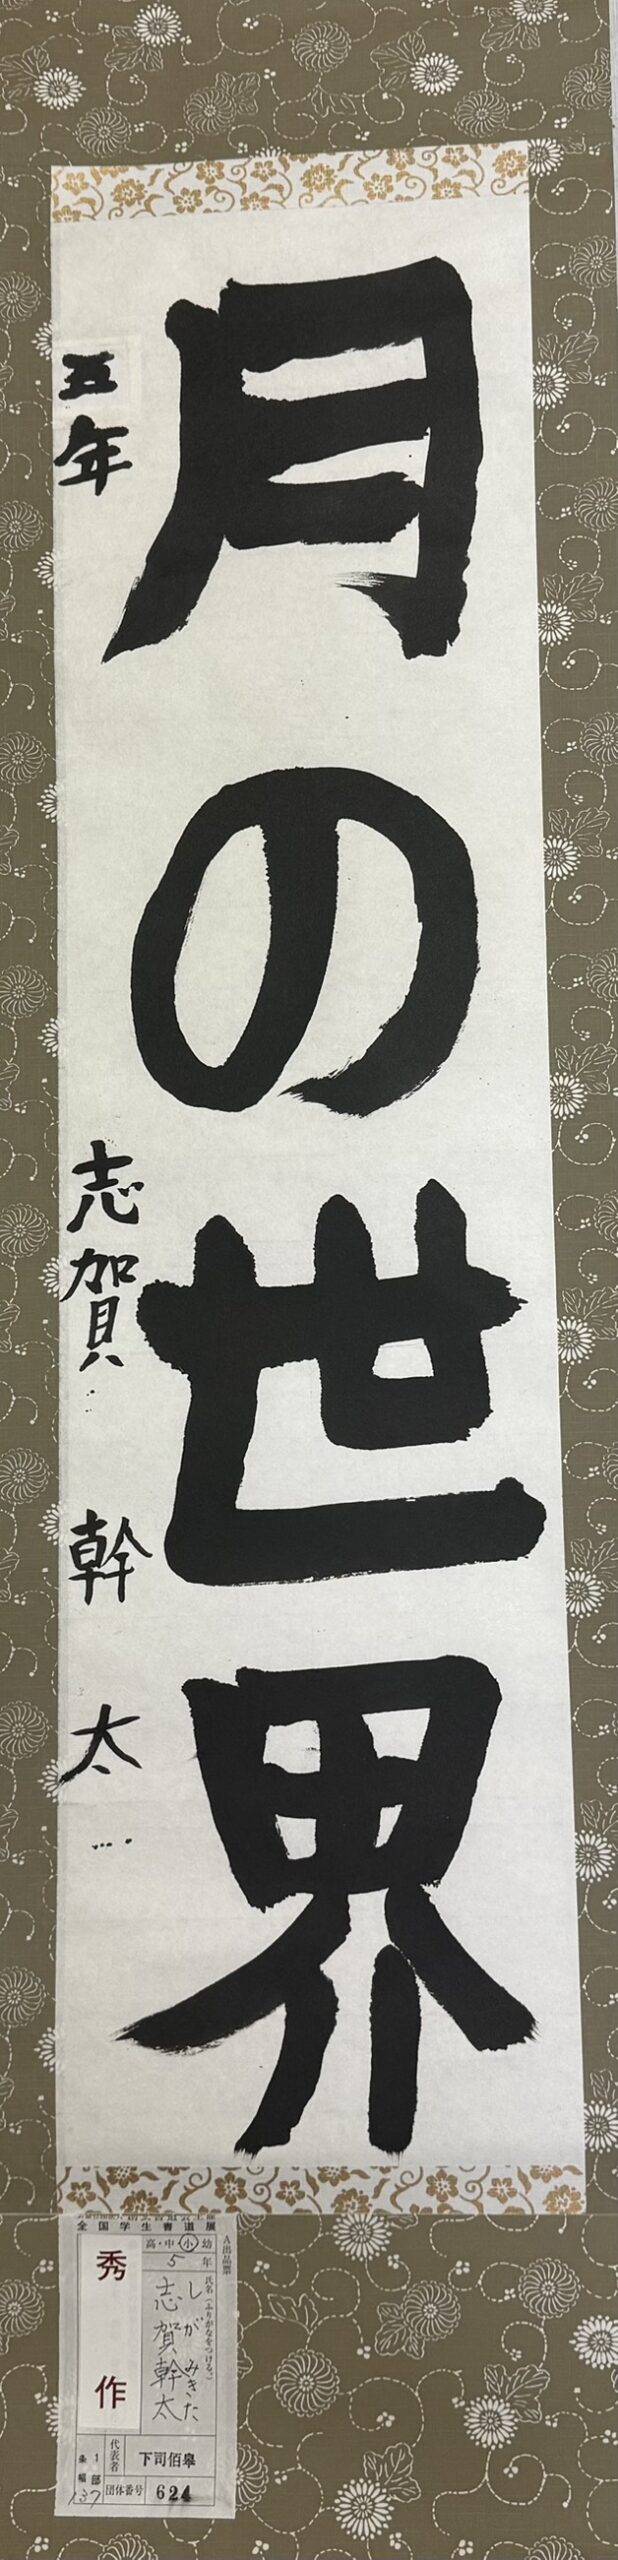 月の世界
五年 志賀幹太
全国学生書道展
A出品票
高・中・小・幼
5年
氏名(ふりがなをつける。)
しが みきた
志賀幹太
秀作
代表者 下司佰皐
団体番号 624
1部
条幅
137